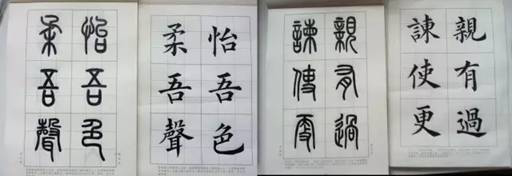 親有過
諫使更
親有過
諫使更
怡吾色
柔吾聲
怡吾色
柔吾聲